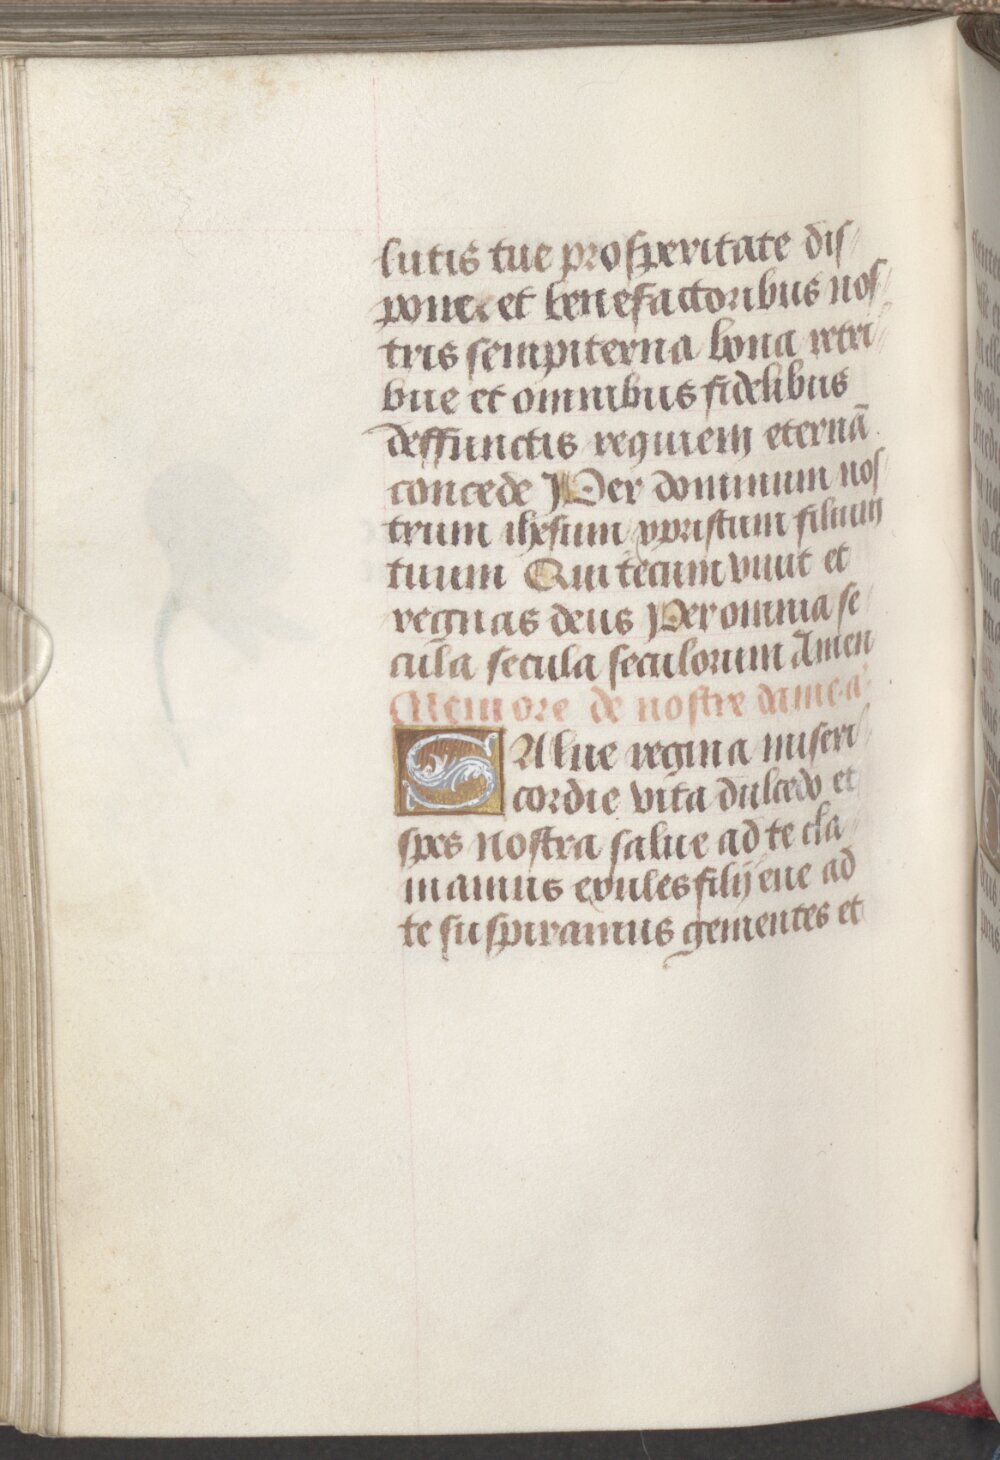 lutis tue prosperitate dis
pone. et benefactoribus nos
tris sempiterna bona retri
bue et omnibus fidelibus
deffunctis requiem eternā
concede Per dominum nos
trum ihesum xpristum filium
tuum Qui tecum viuit et
regnas deus Per omnia se
cula secula seculorum Amen
Memore de nostre dame.a.
Salue regina miseri
cordie vita dulcedo et
spes nostra salue ad te cla
mamus exules filij eue ad
te suspiramus gementes et